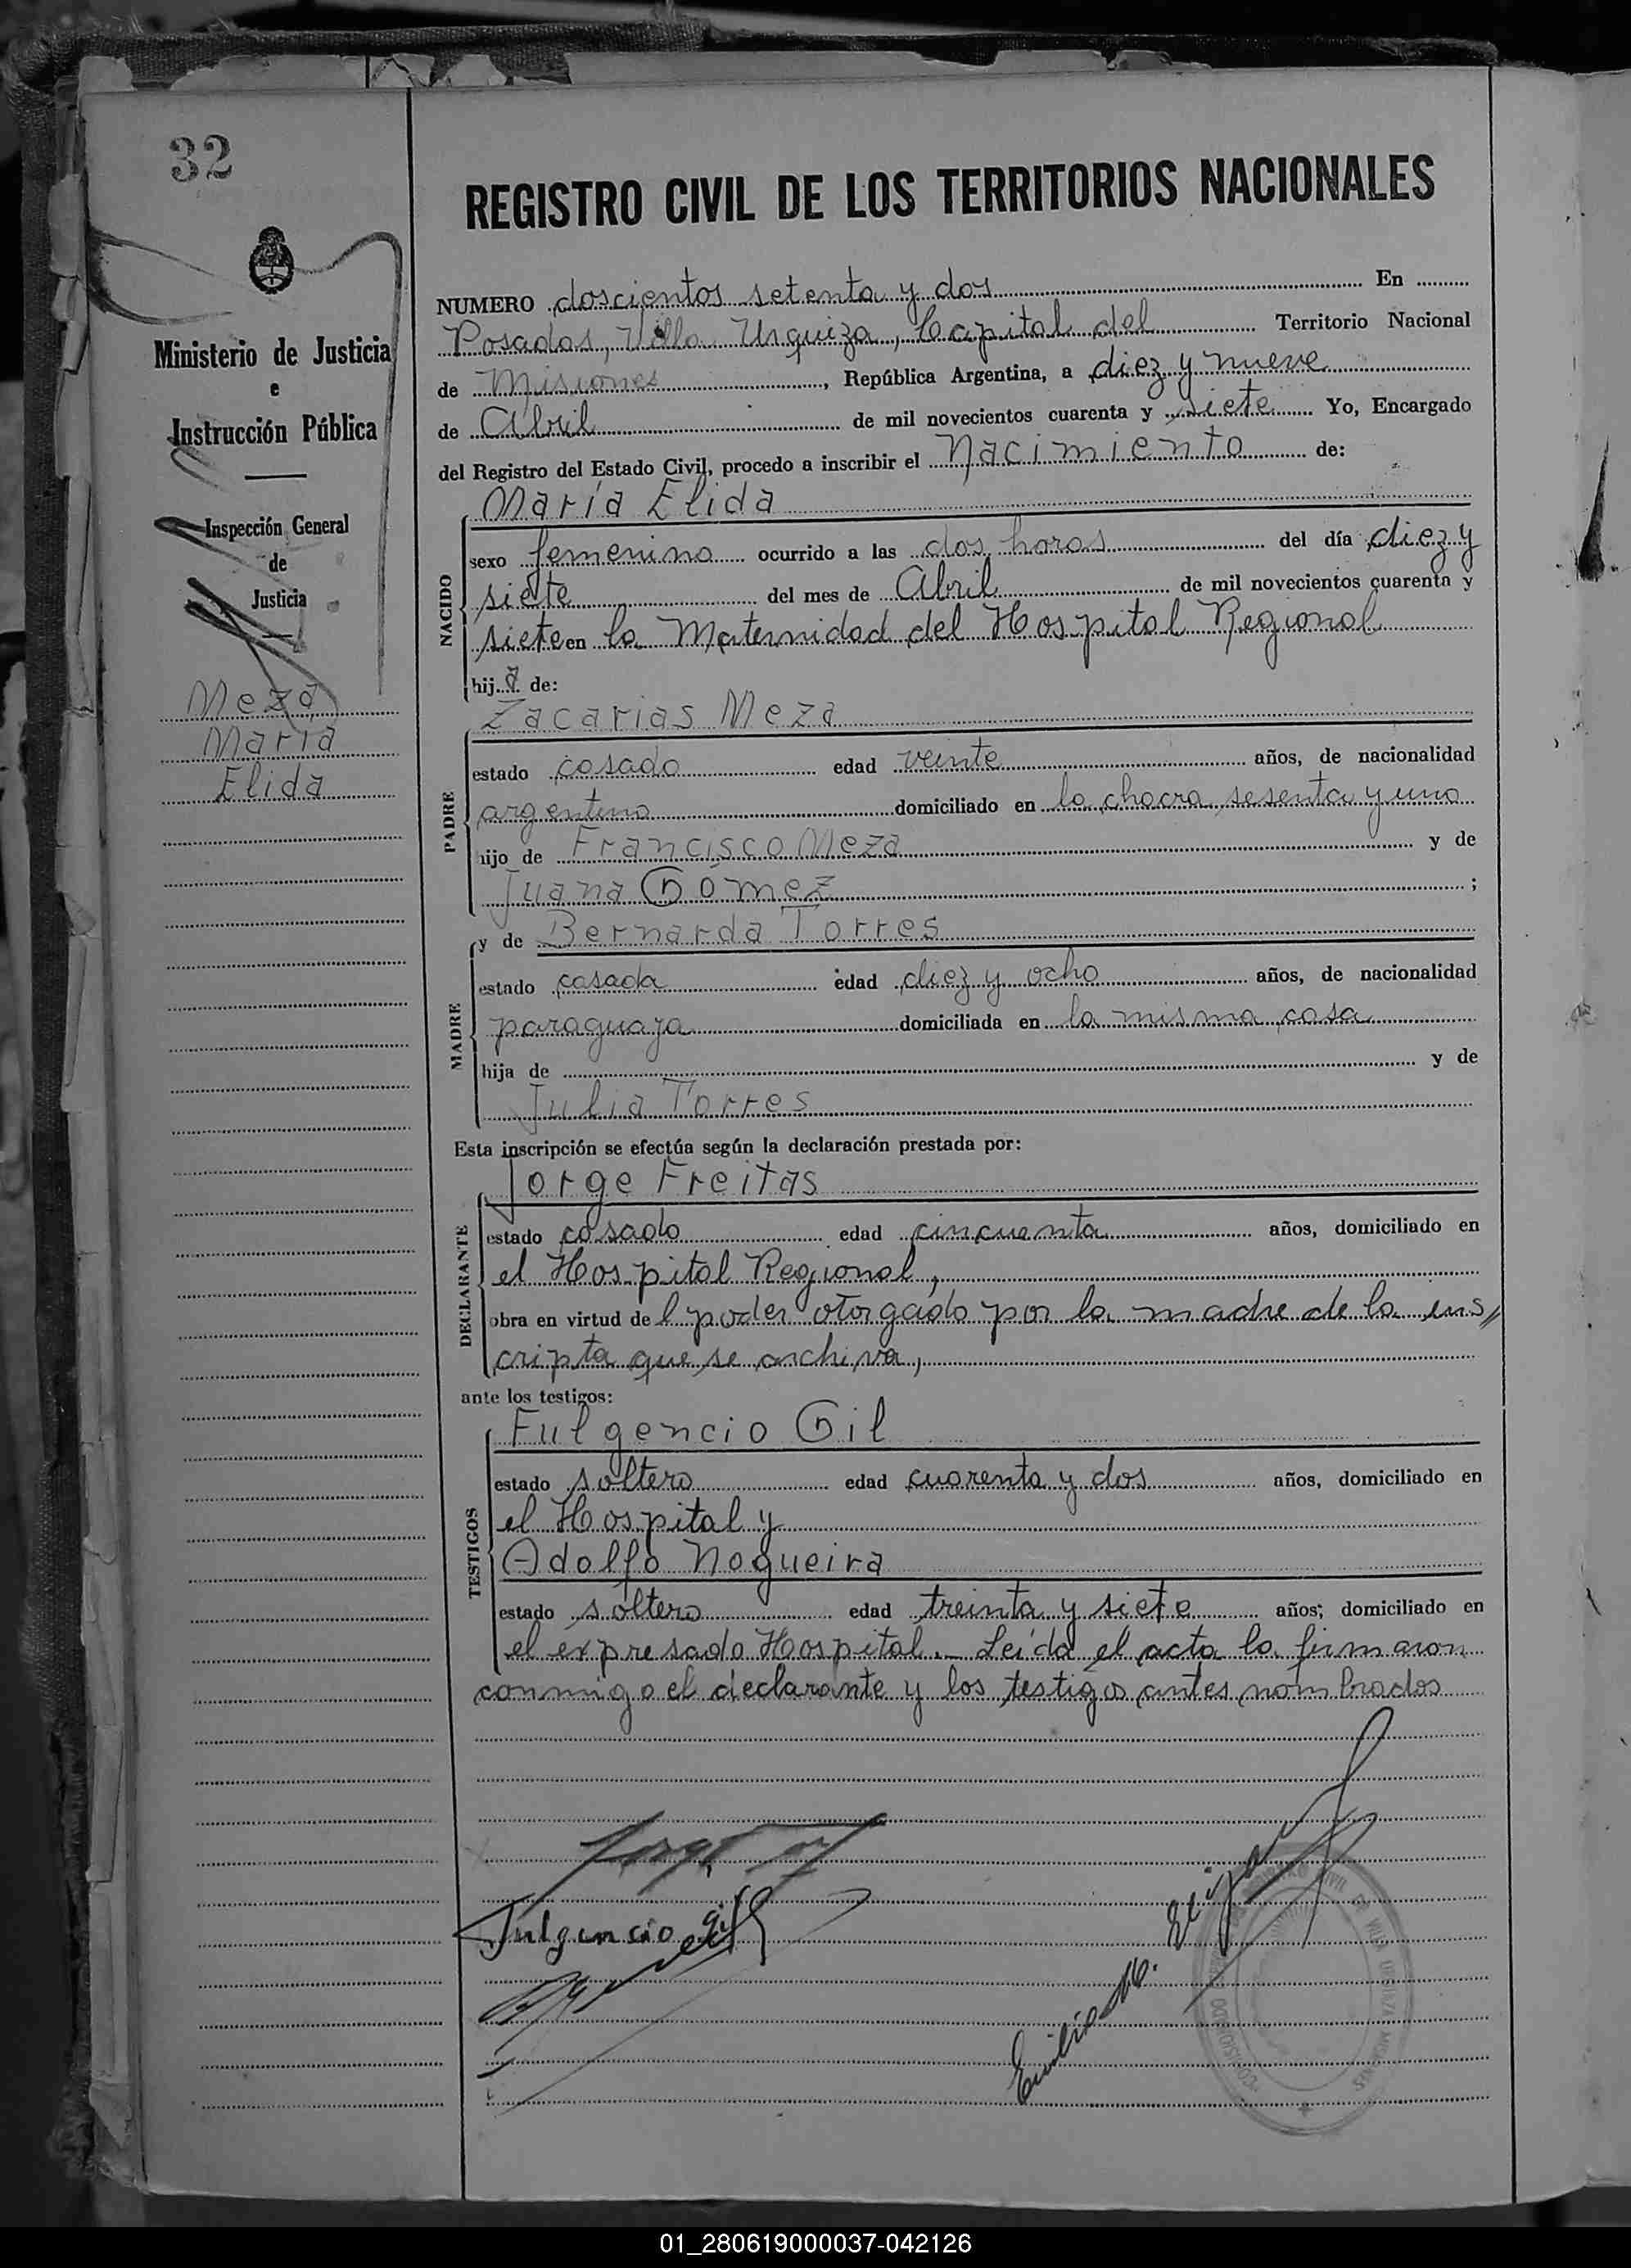 32
REGISTRO CIVIL DE LOS TERRITORIOS NACIONALES
Ministerio de Justicia
e
Instrucción Pública
Inspección General
de
Justicia
Meza
María
Elida
NUMERO doscientos setenta y dos En
Posadas, Villa Urquiza, Capital del Territorio Nacional
de Misiones, República Argentina, a diez y nueve
de Abril de mil novecientos cuarenta y siete Yo, Encargado
del Registro del Estado Civil, procedo a inscribir el Nacimiento de:
María Elida
NACIDO
sexo femenino ocurrido a las dos horas del día diez y
siete del mes de Abril de mil novecientos cuarenta y
siete en la Maternidad del Hospital Regional
hija de:
Zacarias Meza
PADRE
estado casado edad veinte años, de nacionalidad
argentino domiciliado en la chacra sesenta y uno
hijo de Francisco Meza y de
Juana Gómez ;
y de Bernarda Torres
MADRE
estado casada edad diez y ocho años, de nacionalidad
paraguaya domiciliada en la misma casa
hija de y de
Julia Torres
Esta inscripción se efectúa según la declaración prestada por:
Jorge Freitas
DECLARANTE
estado casado edad cincuenta años, domiciliado en
el Hospital Regional,
obra en virtud del poder otorgado por la madre de la ins//
cripta que se archiva,
ante los testigos:
Fulgencio Gil
TESTIGOS
estado soltero edad cuarenta y dos años, domiciliado en
el Hospital y
Adolfo Nogueira
estado soltero edad treinta y siete años; domiciliado en
el expresado Hospital.- Leída el acta la firmaron
conmigo el declarante y los testigos antes nombrados
Fulgencio Gil
Emilio M.
01_280619000037-042126